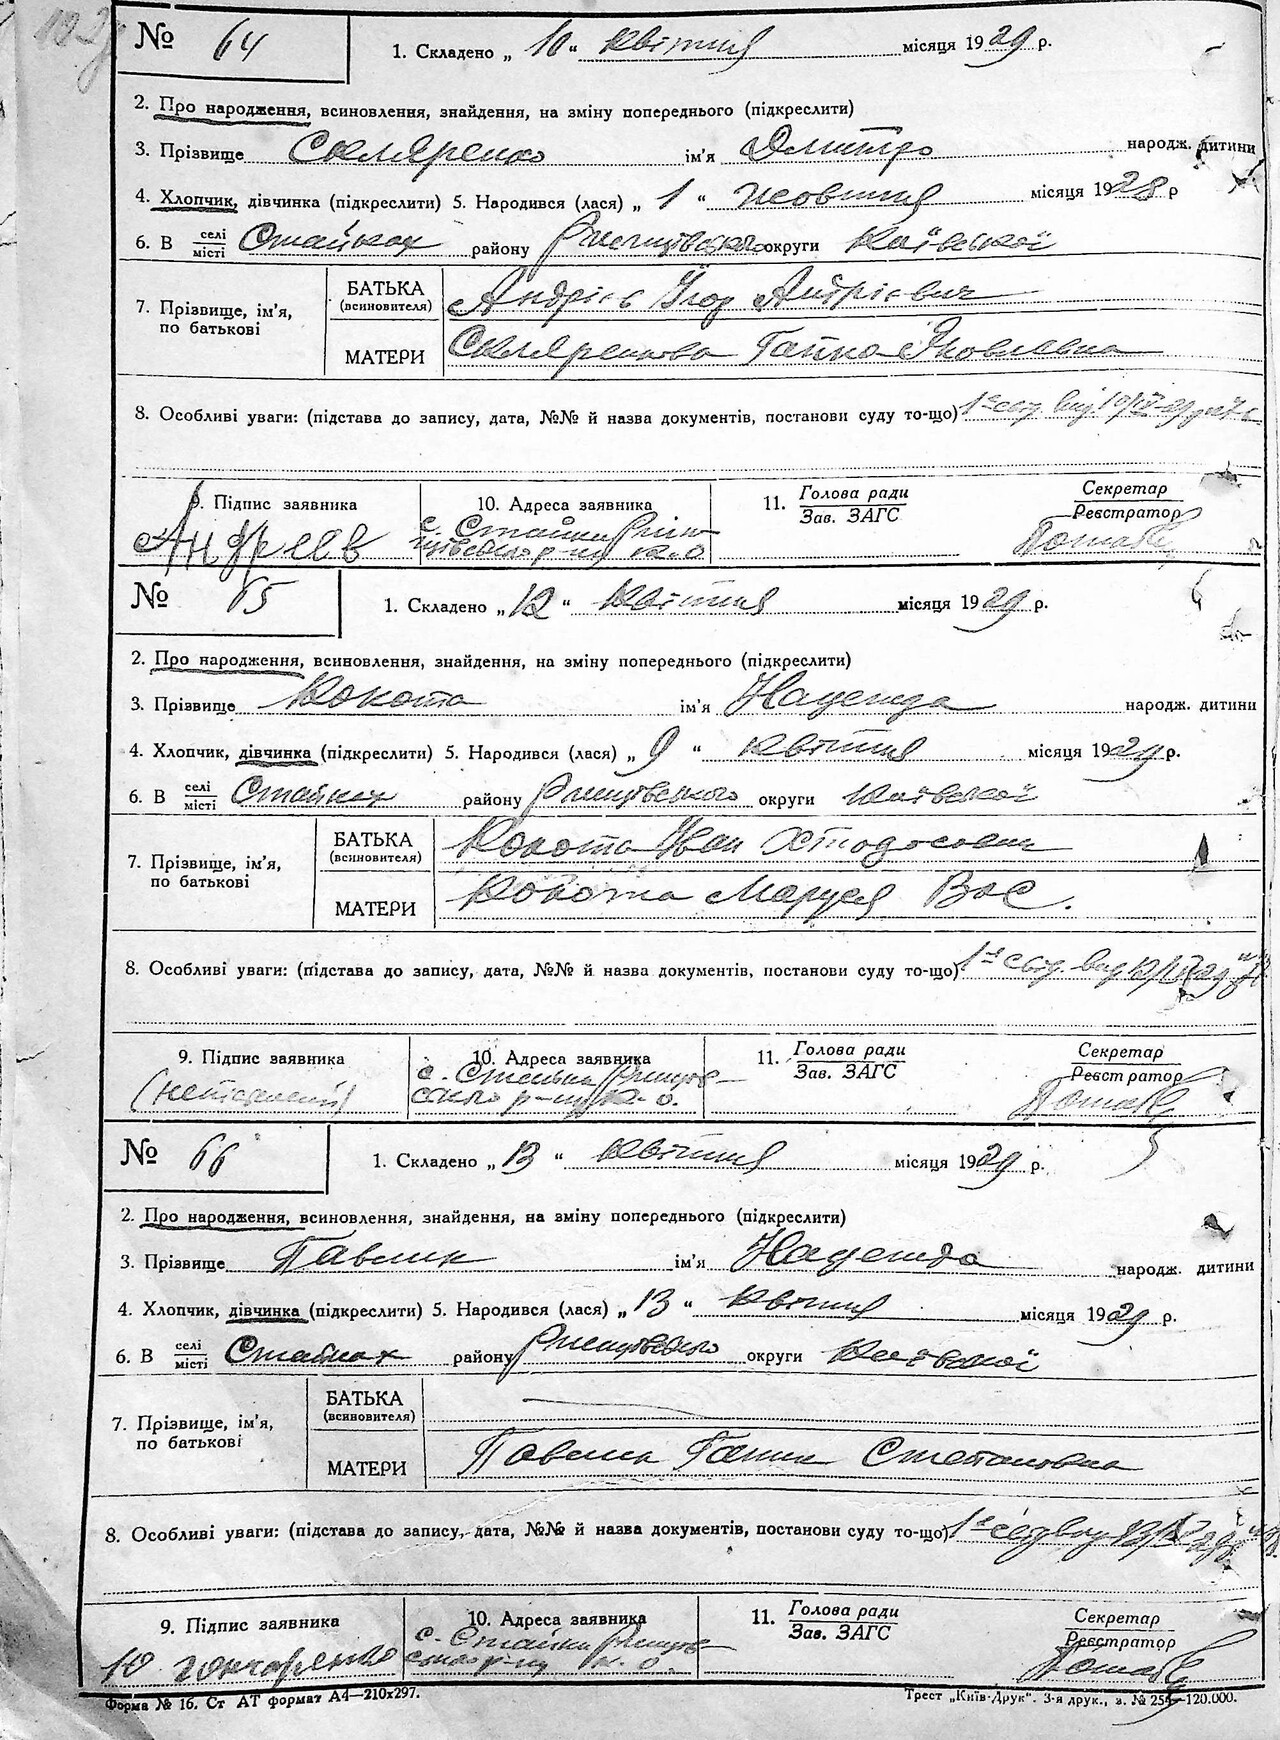 № 64
1. Складено „ 10 “ квітня місяця 1929 р.
2. Про народження, всиновлення, знайдення, на зміну попереднього (підкреслити)
3. Прізвище Скляренко ім'я Дмитро народж. дитини
4. Хлопчик, дівчинка (підкреслити) 5. Народився (лася) „ 1 “ жовтня місяця 1928 р
6. В селі місті Стайках району Ржищівського округи Київської
7. Прізвище, ім'я, по батькові
БАТЬКА (всиновителя) Андрієв Ігор Андрієвич
МАТЕРИ Скляренкова Ганна Яковлевна
8. Особливі уваги: (підстава до запису, дата, №№ й назва документів, постанови суду то-що)
9. Підпис заявника 10. Адреса заявника 11. Голова ради Зав. ЗАГС Секретар Реєстратор
Андреев с. Стайки Ржищівського р-ну К. о.
№ 65
1. Складено „ 12 “ квітня місяця 1929 р.
2. Про народження, всиновлення, знайдення, на зміну попереднього (підкреслити)
3. Прізвище Кокота ім'я Надежда народж. дитини
4. Хлопчик, дівчинка (підкреслити) 5. Народився (лася) „ 9 “ квітня місяця 1929 р.
6. В селі місті Стайках району Ржищівського округи Київської
7. Прізвище, ім'я, по батькові
БАТЬКА (всиновителя) Кокота Іван
МАТЕРИ Кокота Маруся Вас.
8. Особливі уваги: (підстава до запису, дата, №№ й назва документів, постанови суду то-що)
9. Підпис заявника 10. Адреса заявника 11. Голова ради Зав. ЗАГС Секретар Реєстратор
с. Стайки р-ну К. о.
№ 66
1. Складено „ 13 “ квітня місяця 1929 р.
2. Про народження, всиновлення, знайдення, на зміну попереднього (підкреслити)
3. Прізвище Павлик ім'я Надежда народж. дитини
4. Хлопчик, дівчинка (підкреслити) 5. Народився (лася) „ 13 “ квітня місяця 1929 р.
6. В селі місті Стайках району Ржищівського округи Київської
7. Прізвище, ім'я, по батькові
БАТЬКА (всиновителя) —
МАТЕРИ Павлик Степановна
8. Особливі уваги: (підстава до запису, дата, №№ й назва документів, постанови суду то-що)
9. Підпис заявника 10. Адреса заявника 11. Голова ради Зав. ЗАГС Секретар Реєстратор
Гончаренко с. Стайки р-ну К. о.
Форма № 16. Ст АТ формат А4—210х297.
Трест „Київ-Друк“. 3-я друк., з. № 254—120.000.